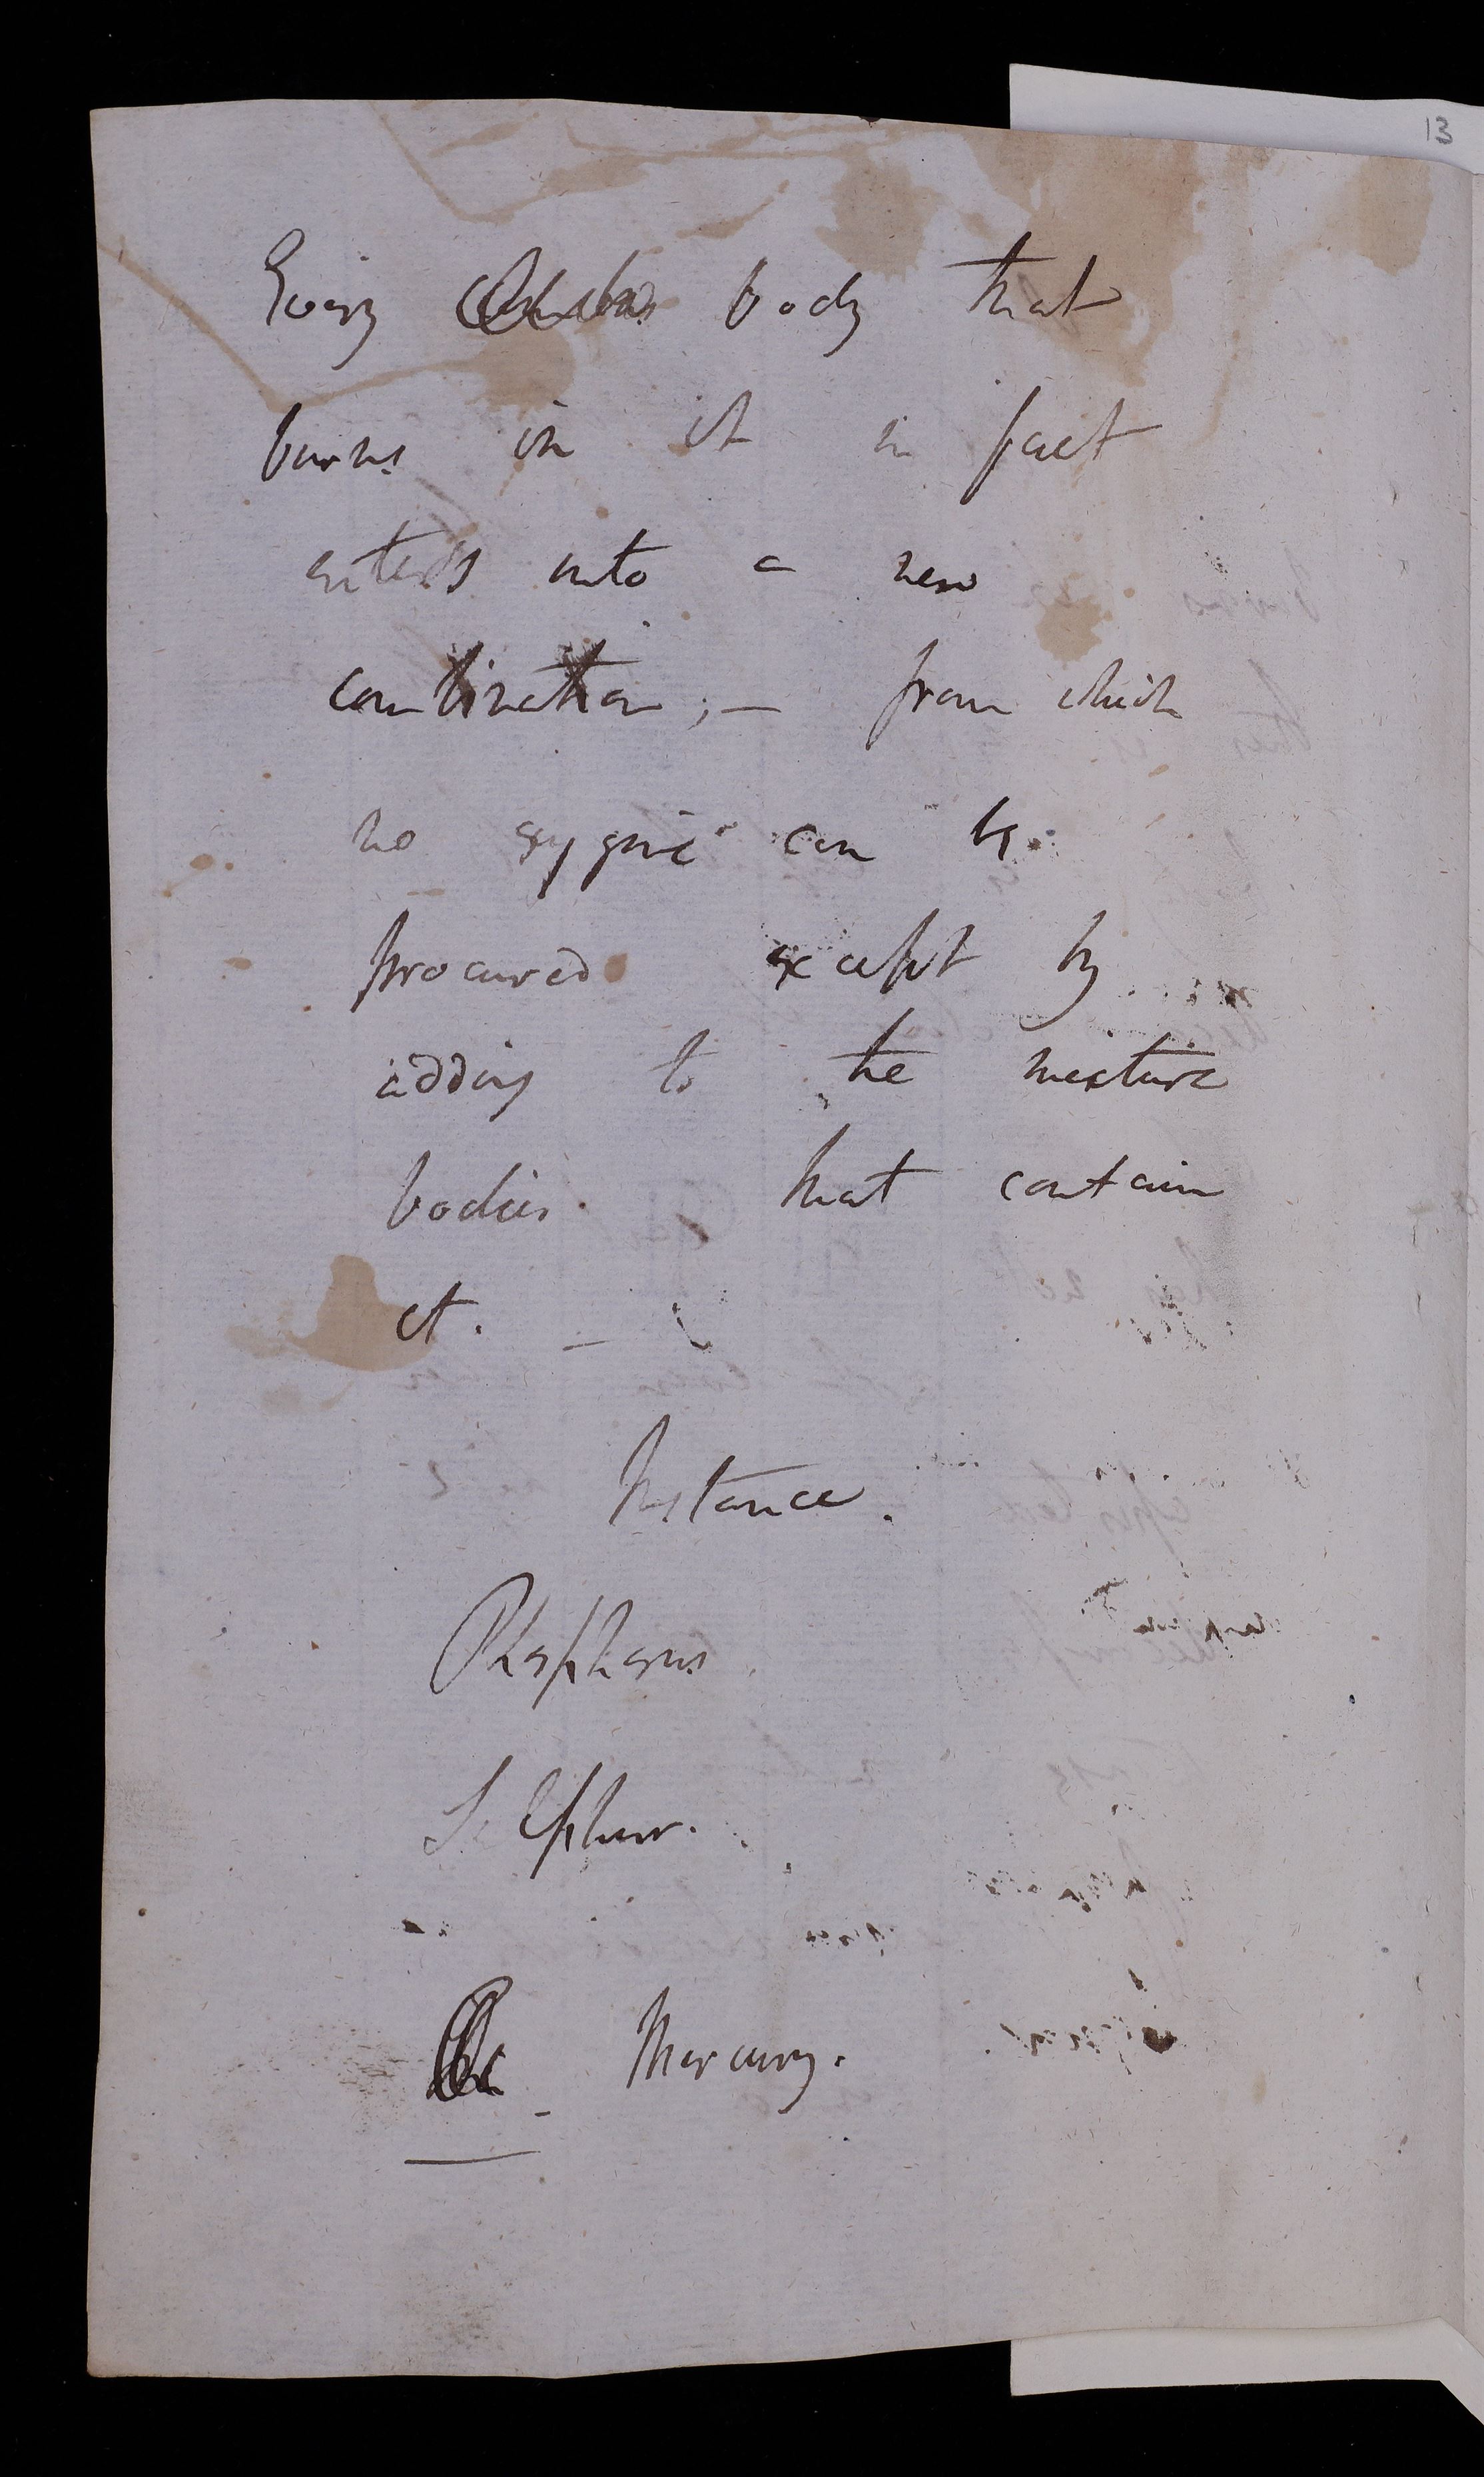 13
Every body that
burns in it in fact
enters into a new
combination; — from which
no oxygene can be
procured except by
adding to the mixture
bodies that contain
it. —
Instance.
Phosphorus
Sulphur.
Mercury.